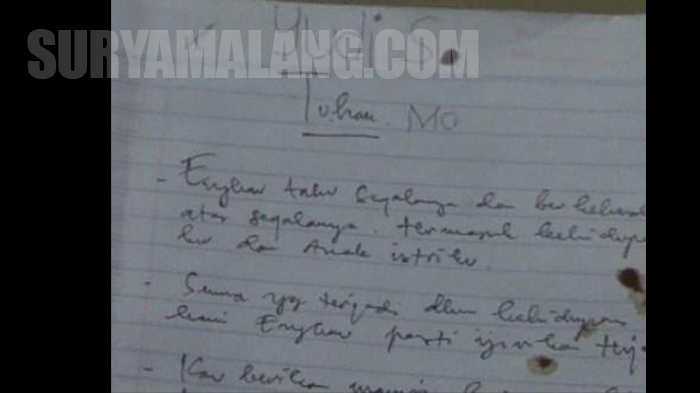 Yudi S.
SURYAMALANG.COM
Tuhan. MO
- Engkau tahu segalanya dan berkehend
atas segalanya. termasuk kehidupan
ku dan Anak istriku.
- Semua yg terjadi dlm kehidupan
kami Engkau pasti ijinkan terj
- Kau berikan